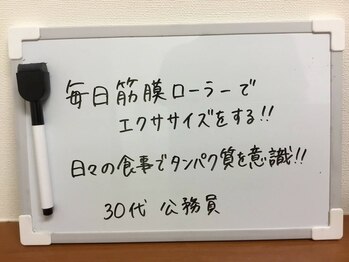 毎日筋膜ローラーで
エクササイズをする!!
日々の食事でタンパク質を意識!!
30代 公務員